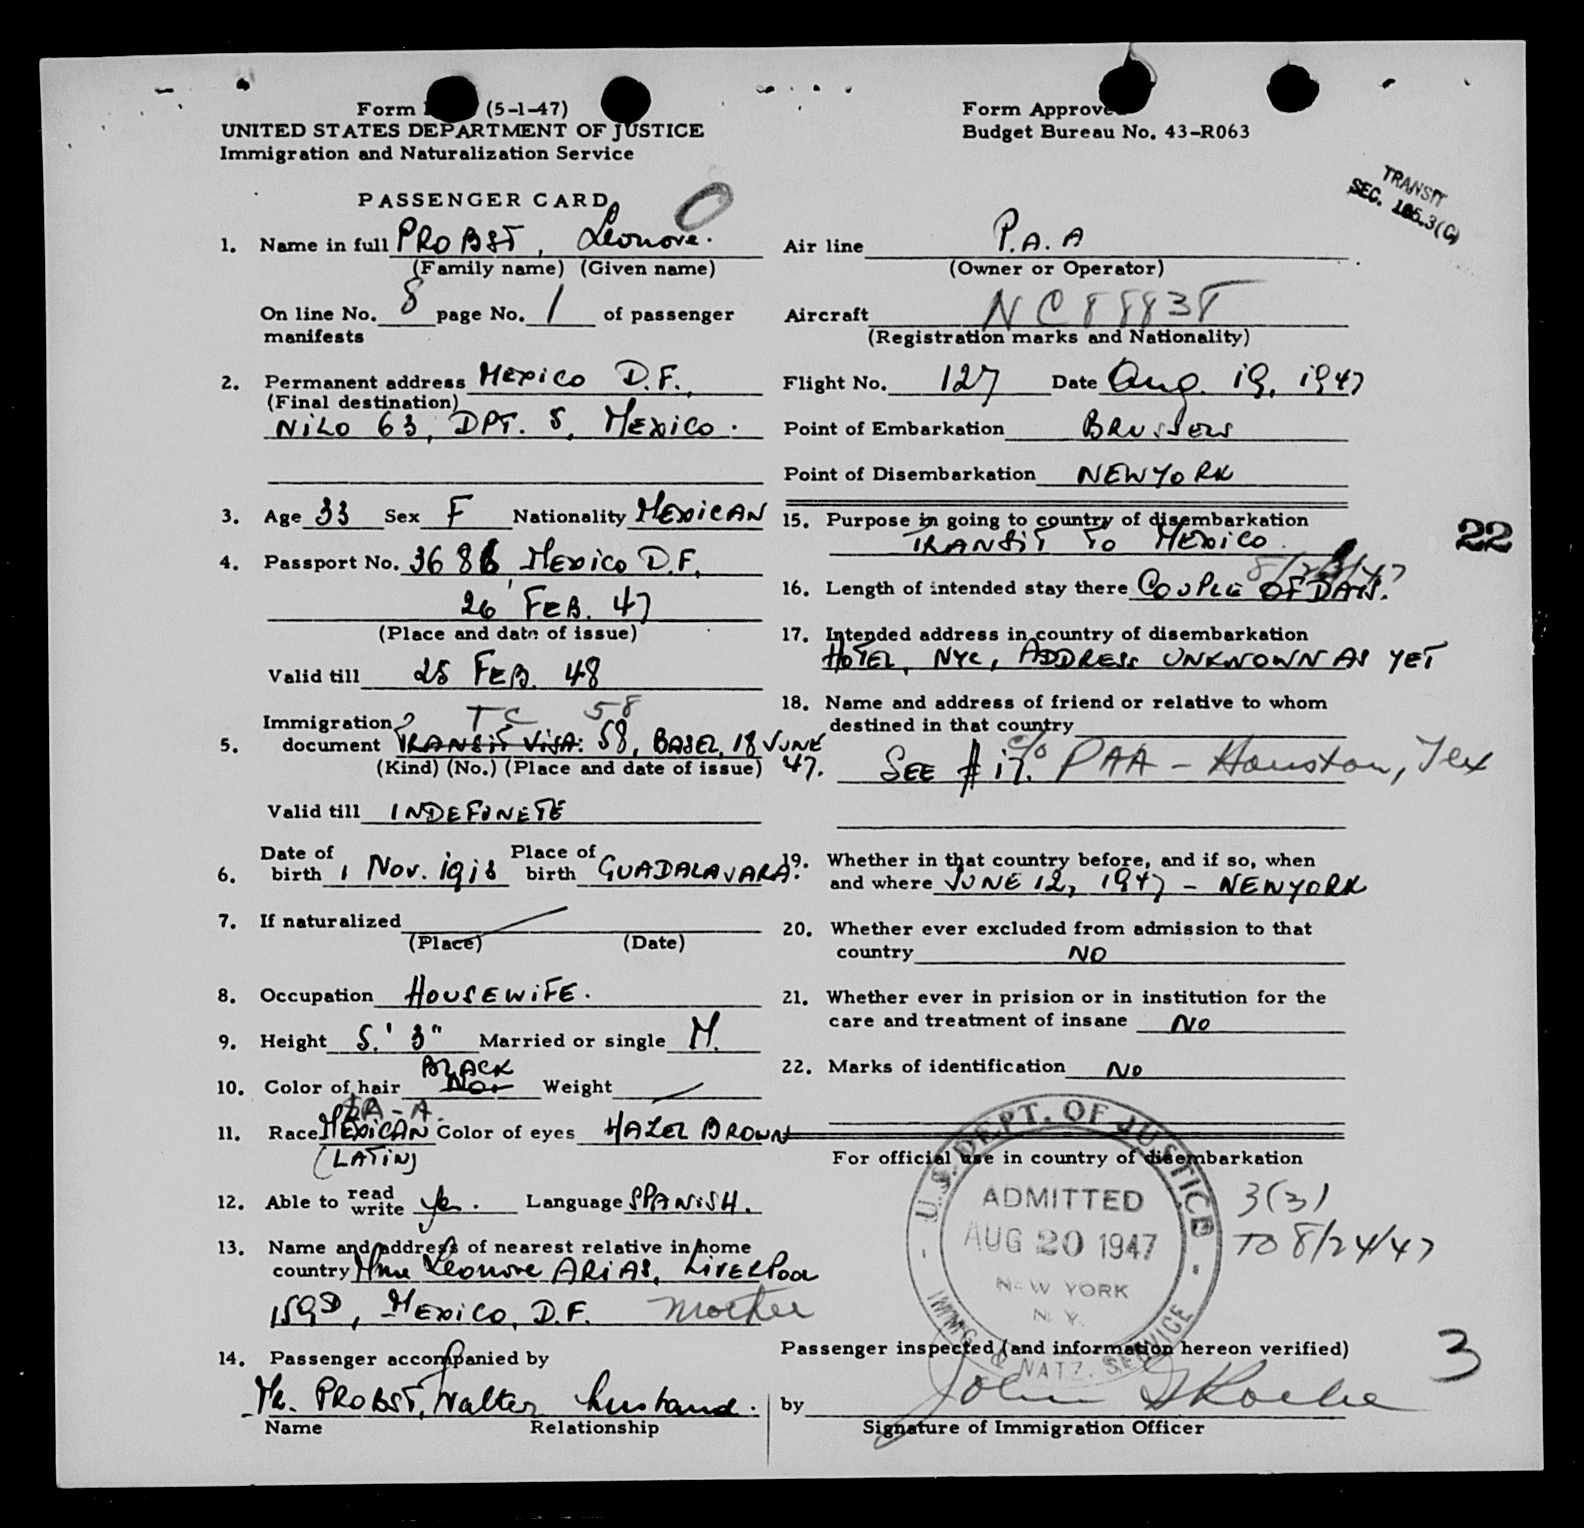 Form (5-1-47)
UNITED STATES DEPARTMENT OF JUSTICE
Immigration and Naturalization Service
Form Approve
Budget Bureau No. 43-R063
TRANSIT
SEC. 165.3(C)
PASSENGER CARD
0
1. Name in full PROBST, Leonore.
(Family name) (Given name)
On line No. 8 page No. 1 of passenger
manifests
2. Permanent address MEXICO D.F.,
(Final destination)
NILO 63, DPT. 5, MEXICO.
3. Age 33 Sex F Nationality MEXICAN
4. Passport No. 3686 MEXICO D.F,
26 FEB. 47
(Place and date of issue)
Valid till 25 FEB. 48
TC 58
Immigration
5. document TRANSIT VISA: 58, BASEL, 18 JUNE
(Kind) (No.) (Place and date of issue) 47.
Valid till INDEFINETE
Date of Place of
6. birth 1 Nov. 1918 birth GUADALAVARA.
7. If naturalized
(Place) (Date)
8. Occupation HOUSEWIFE.
9. Height 5.' 3" Married or single M.
BLACK
10. Color of hair Weight
11. Race MEXICAN Color of eyes HAZEL BROWN
(LATIN)
12. Able to read write yes. Language SPANISH.
13. Name and address of nearest relative in home
country Mme Leonore ARIAS, LIVERPOOL
159D, MEXICO, D.F. Mother
14. Passenger accompanied by
Mr. PROBST, Walter husband.
Name Relationship
Air line P.A.A
(Owner or Operator)
Aircraft NC88838
(Registration marks and Nationality)
Flight No. 127 Date Aug. 19, 1947
Point of Embarkation BRUSSELS
Point of Disembarkation NEW YORK
15. Purpose in going to country of disembarkation
TRANSIT TO MEXICO.
22
16. Length of intended stay there COUPLE OF DAYS.
17. Intended address in country of disembarkation
HOTEL, NYC, ADDRESS UNKNOWN AS YET
18. Name and address of friend or relative to whom
destined in that country
SEE # 17. c/o PAA - Houston, Tex
19. Whether in that country before, and if so, when
and where JUNE 12, 1947 - NEW YORK
20. Whether ever excluded from admission to that
country NO
21. Whether ever in prision or in institution for the
care and treatment of insane NO
22. Marks of identification NO
For official use in country of disembarkation
U.S. DEPT. OF JUSTICE
ADMITTED
AUG 20 1947
NEW YORK
N. Y.
IMMG. & NATZ. SERVICE
3(3)
TO 8/24/47
Passenger inspected (and information hereon verified)
3
by John
Signature of Immigration Officer